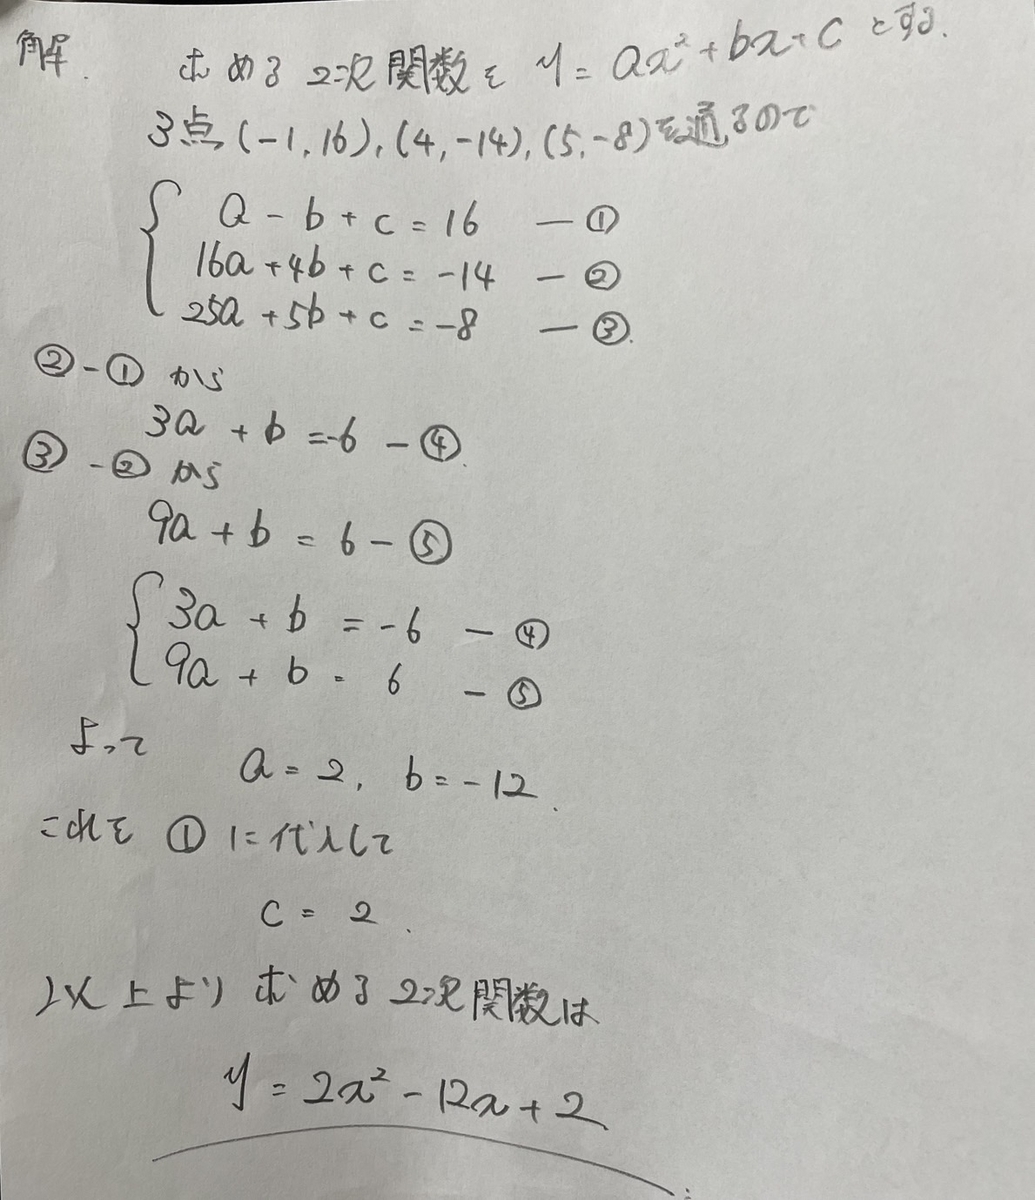 解. 求める2次関数を y = ax² + bx + c とする.
3点 (-1, 16), (4, -14), (5, -8) を通るので
a - b + c = 16 — ①
16a + 4b + c = -14 — ②
25a + 5b + c = -8 — ③.
② - ① から
3a + b = -6 — ④.
③ - ② から
9a + b = 6 — ⑤
3a + b = -6 — ④
9a + b = 6 — ⑤
よって
a = 2, b = -12.
これを ① に代入して
c = 2.
以上より 求める2次関数は
y = 2x² - 12x + 2